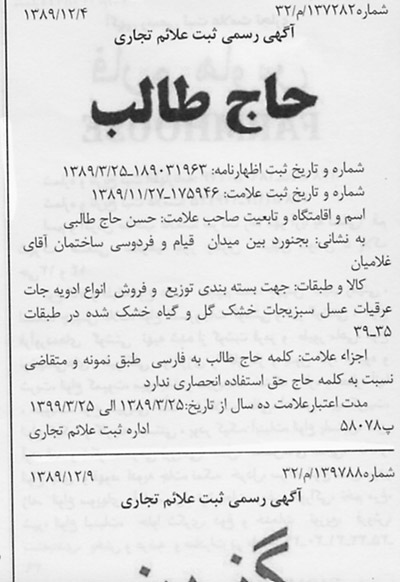 شماره۱۳۷۲۸۲/م/۳۲ ۱۳۸۹/۱۲/۴
آگهی رسمی ثبت علائم تجاری
حاج طالب
شماره و تاریخ ثبت اظهارنامه: ۱۸۹۰۳۱۹۶۳ـ۱۳۸۹/۳/۲۵
شماره و تاریخ ثبت علامت: ۱۷۵۹۴۶ـ۱۳۸۹/۱۱/۲۷
اسم و اقامتگاه و تابعیت صاحب علامت: حسن حاج طالبی
به نشانی: بجنورد بین میدان قیام و فردوسی ساختمان آقای
غلامیان
کالا و طبقات: جهت بسته بندی توزیع و فروش انواع ادویه جات
عرقیات عسل سبزیجات خشک گل و گیاه خشک شده در طبقات
۳۵ـ۳۹
اجزاء علامت: کلمه حاج طالب به فارسی طبق نمونه و متقاضی
نسبت به کلمه حاج حق استفاده انحصاری ندارد
مدت اعتبارعلامت ده سال از تاریخ:۱۳۸۹/۳/۲۵ الی ۱۳۹۹/۳/۲۵
پ۵۸۰۷۸ اداره ثبت علائم تجاری
شماره۱۳۹۷۸۸/م/۳۲ ۱۳۸۹/۱۲/۹
آگهی رسمی ثبت علائم تجاری